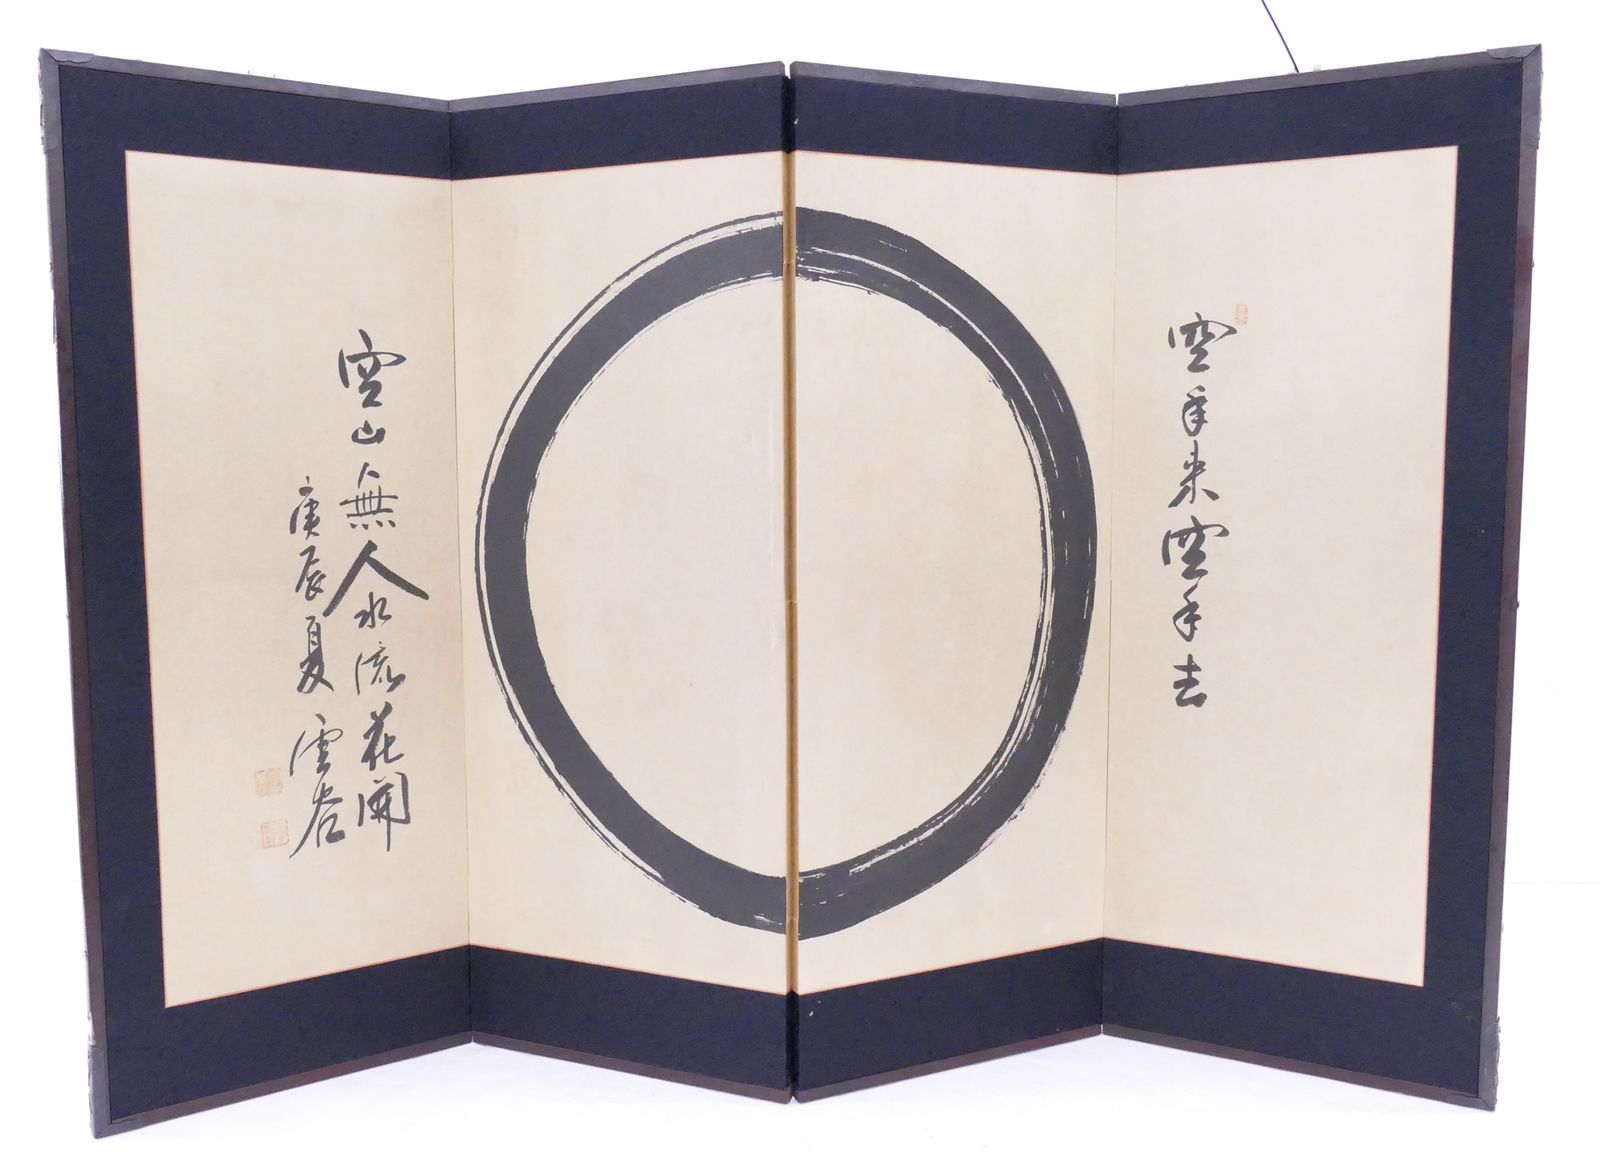 空手来空手去
空山無人水流花開
庚辰夏 雲谷